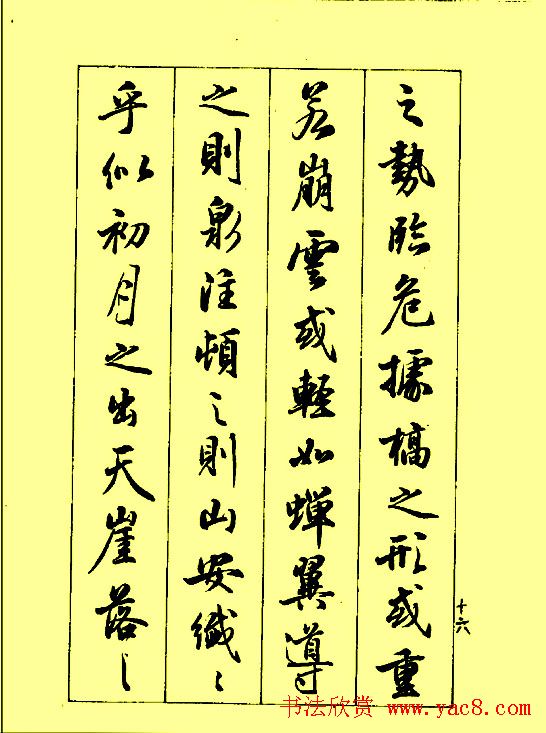 之勢臨危據槁之形或重
若崩雲或輕如蟬翼導
之則泉注頓之則山安纖纖
乎似初月之出天崖落落
十六
书法欣赏 www.yac8.com